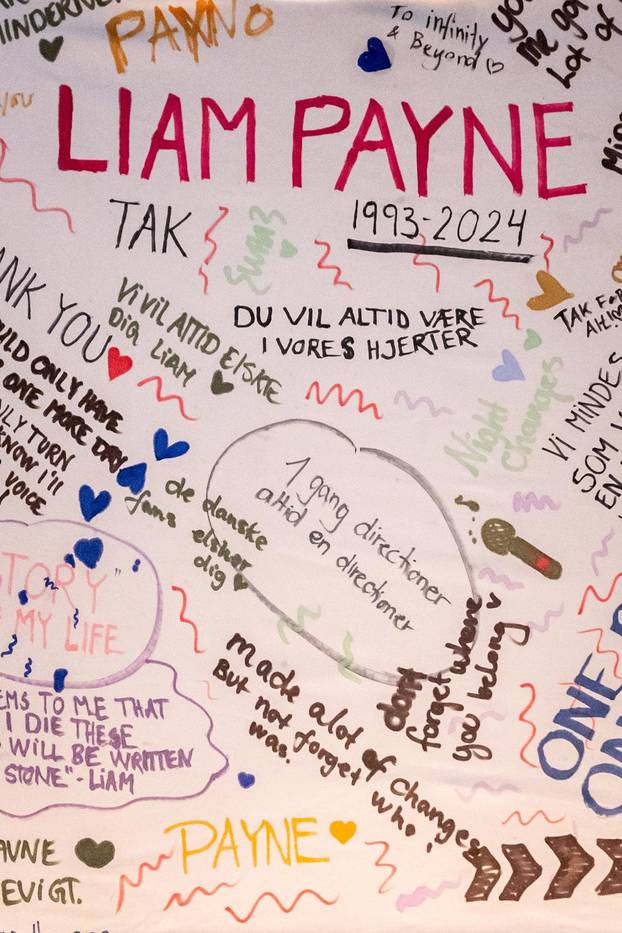 MINDERNE
PAYNO
To infinity
& Beyond
you
me got
Lot of
LIAM PAYNE
TAK
1993-2024
YOU
THANK YOU
Vi VIL ALTID ELSKE
Dig LiAM
DU VIL ALTID VÆRE
I VORES HJERTER
TAK FOR
Night
Changes
VI MINDES
SOM V
EN
ULD ONLY HAVE
ONE MORE DAY
NLY TURN
KNOW I'll
VOICE
de danske
fans elsker
dig
1 gang directioner
altid en directioner
STORY"
MY LIFE
EMS TO ME THAT
I DIE THESE
WILL BE WRITTEN
STONE"-LiAM
made alot of changes
But not forget who i
was.
dont
forget where
you belong
ONE
ON
PAYNE
AYNE
EViGT.